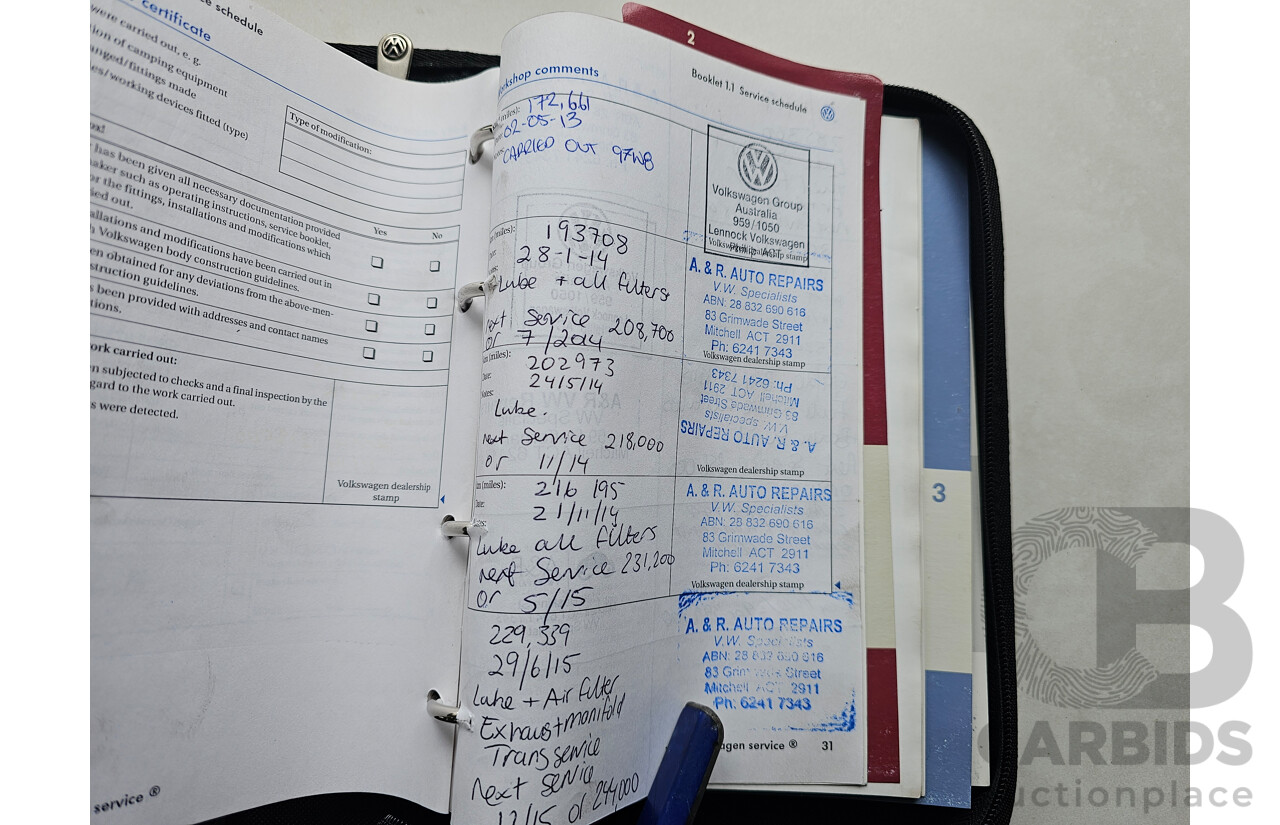 e schedule
certificate
were carried out, e. g.
ion of camping equipment
anged/fittings made
es/working devices fitted (type)
Type of modification:
has been given all necessary documentation provided
aker such as operating instructions, service booklet,
or the fittings, installations and modifications which
ied out.
Yes
No
allations and modifications have been carried out in
h Volkswagen body construction guidelines.
en obtained for any deviations from the above-men-
struction guidelines.
s been provided with addresses and contact names
tions.
ork carried out:
n subjected to checks and a final inspection by the
gard to the work carried out.
s were detected.
Volkswagen dealership
stamp
service ®
2
Booklet 1.1 Service schedule
rkshop comments
(miles): 172,661
02-05-13
CARRIED OUT 97WB
Volkswagen Group
Australia
959/1050
Lennock Volkswagen
Phillip ACT
Volkswagen dealership stamp
(miles): 193708
28-1-14
Lube + all filters
next Service 208,700
or 7/2014
A. & R. AUTO REPAIRS
V.W. Specialists
ABN: 28 832 690 616
83 Grimwade Street
Mitchell ACT 2911
Ph: 6241 7343
Volkswagen dealership stamp
(miles): 202973
24/5/14
Lube.
next Service 218,000
or 11/14
A. & R. AUTO REPAIRS
V.W. specialists
83 Grimwade Street
Mitchell ACT 2911
Ph: 6241 7343
Volkswagen dealership stamp
(miles): 216 195
21/11/14
Lube all filters
next Service 231,200
or 5/15
A. & R. AUTO REPAIRS
V.W. Specialists
ABN: 28 832 690 616
83 Grimwade Street
Mitchell ACT 2911
Ph: 6241 7343
Volkswagen dealership stamp
229,339
29/6/15
Lube + Air filter
Exhaust manifold
Trans service
next service
12/15 or 244,000
A. & R. AUTO REPAIRS
V.W. Specialists
ABN: 28 832 690 616
83 Grimwade Street
Mitchell ACT 2911
Ph: 6241 7343
agen service ® 31
3
CARBIDS
uctionplace